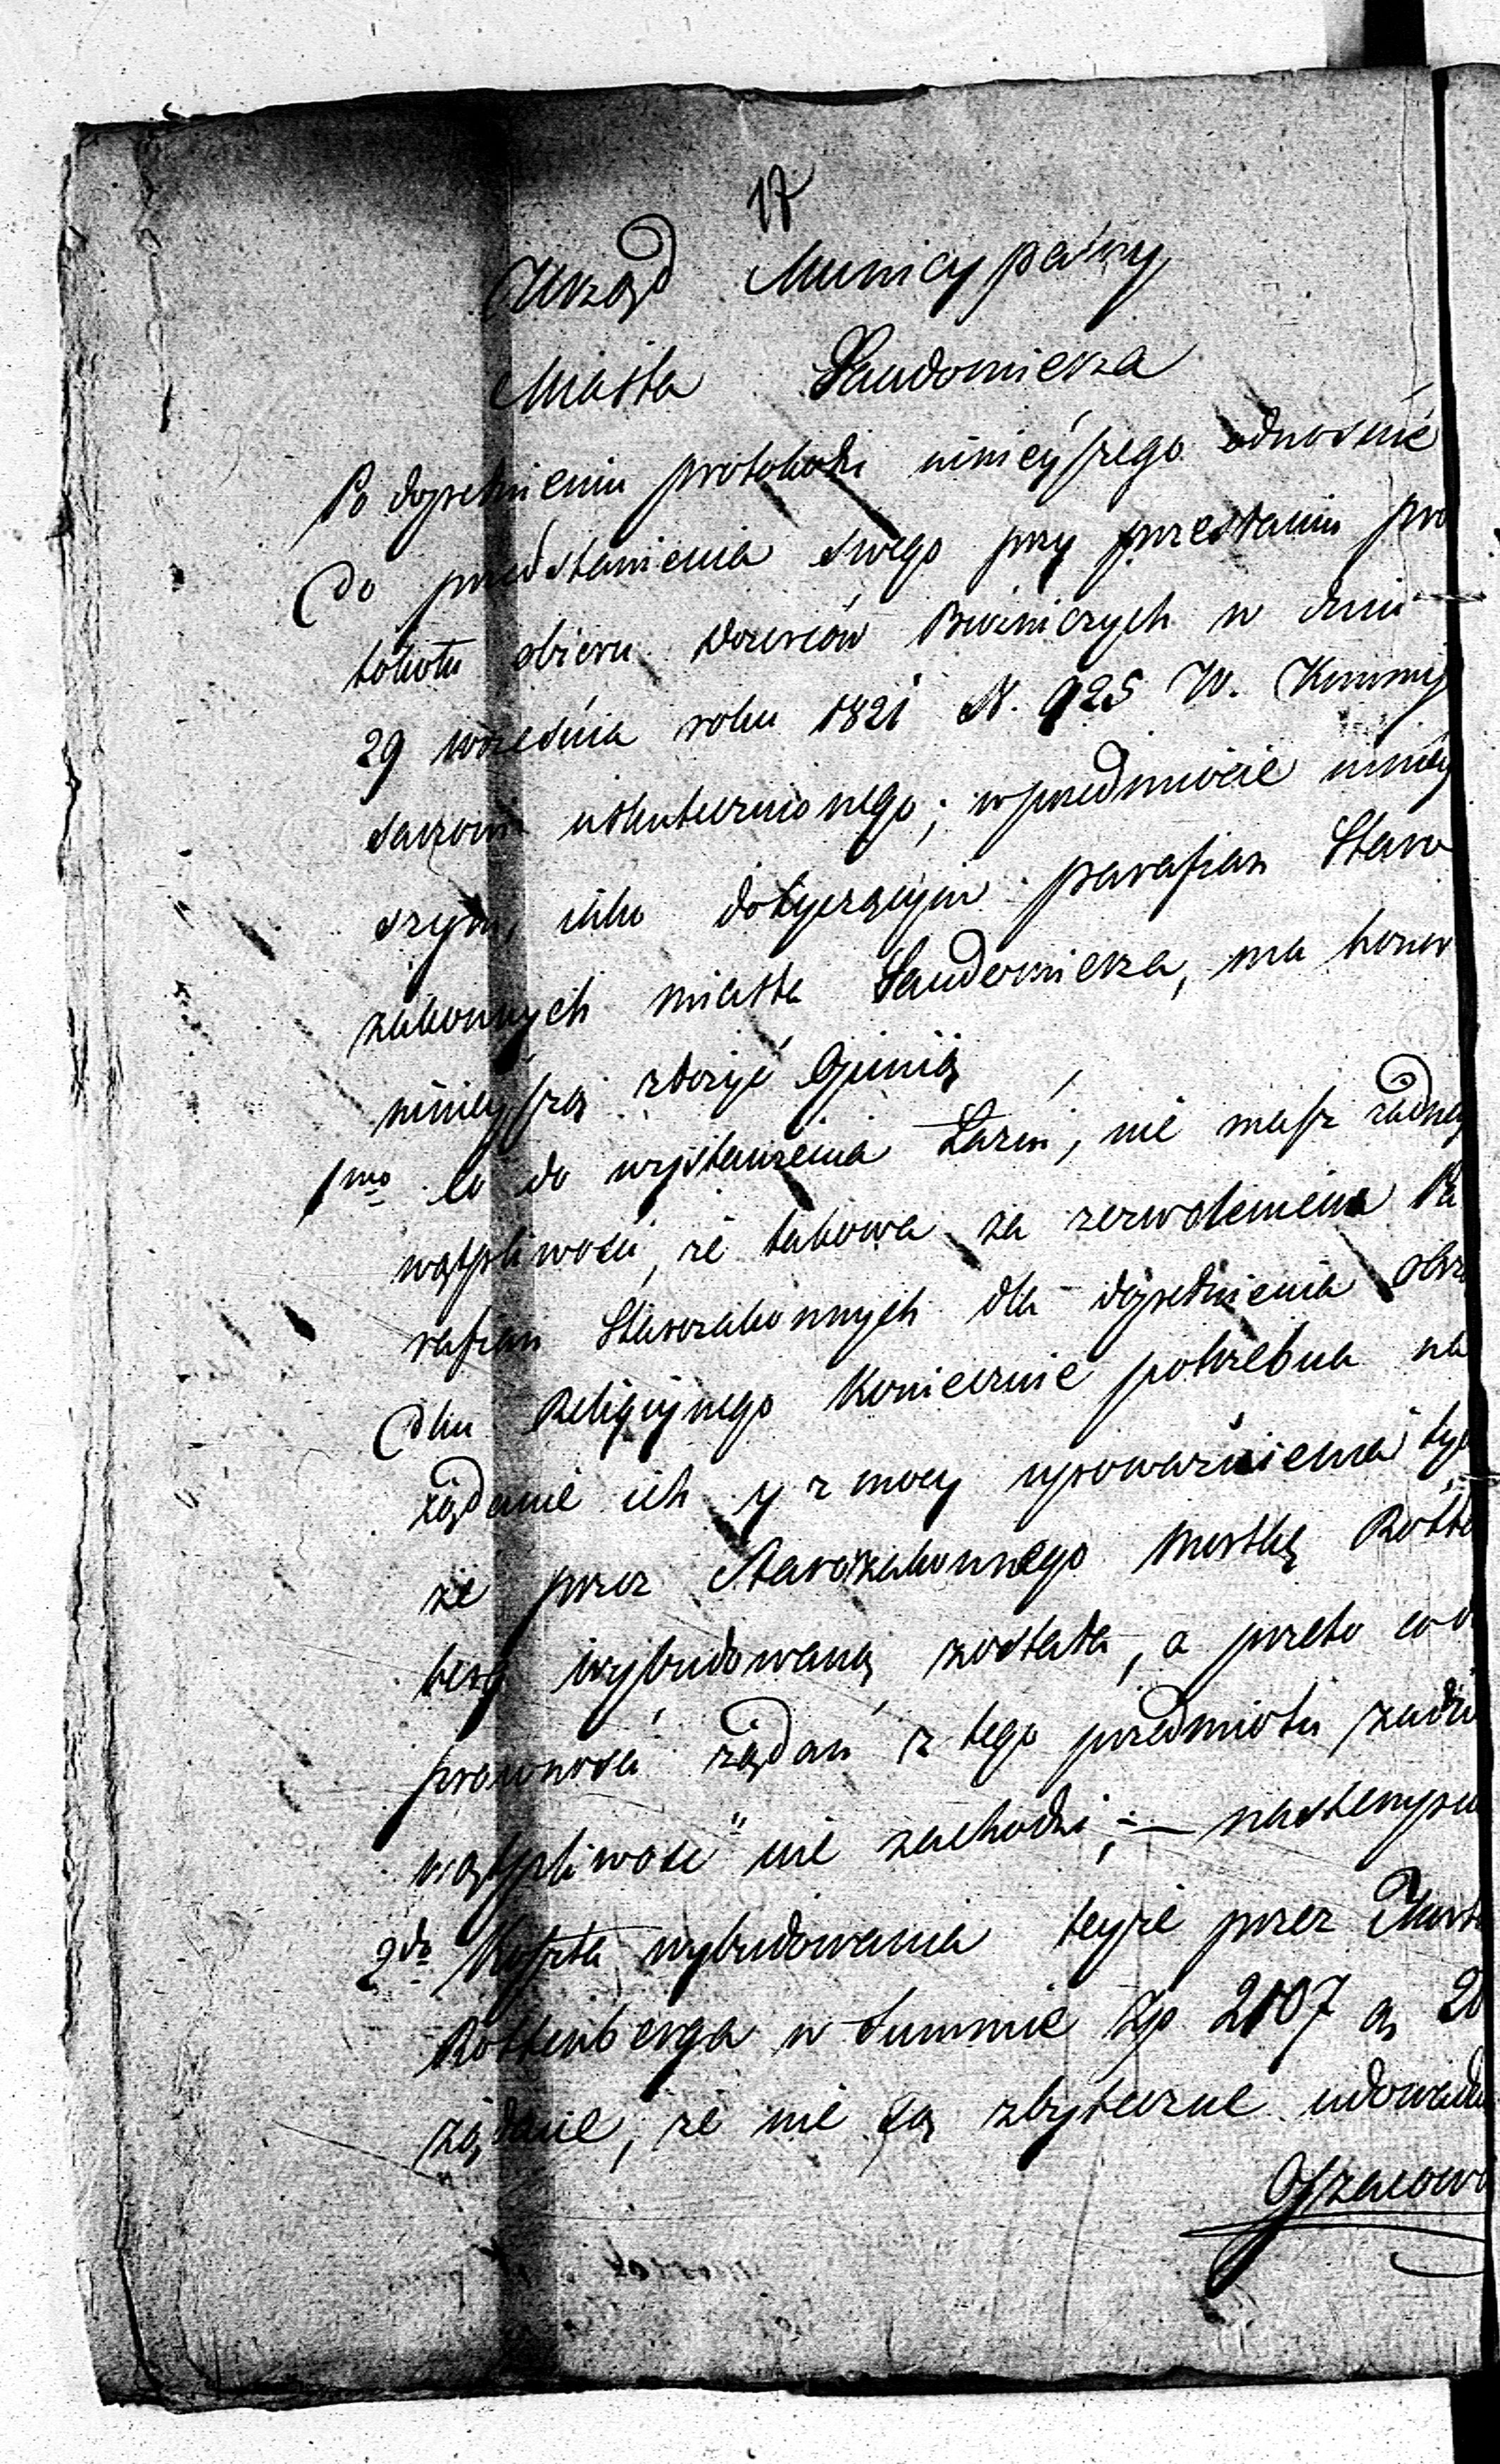 17
Urząd Municypalny
Miasta Sandomierza
Po dopełnieniu protokołu ninieyszego odnośnie
do przedstawienia swego przy przesłaniu pro
tokołu obioru Dozorców Bużniczych w dniu
29 września roku 1821 N. 925 W. Kommis
sarzowi uskutecznionego; w przedmiocie niniey
szym, iako dotyczącym parafian Staro
zakonnych miasta Sandomierza, ma honor
ninieyszą złożyć Opinią
1mo Co do wystawienia Łazni, nie masz żadney
wątpliwości, że takowa za zezwoleniem Pa
rafian Starozakonnych dla dopełnienia obrz
dku Religiynego koniecznie potrzebna na
żądanie ich y z mocy upoważnienia tyc
że przez Starozakonnego Moszkę Rotten
berg wybudowaną została, a przeto co do
prawności żądań z tego przedmiotu żadn
wątpliwość nie zachodzi; — nastempu
2do Koszta wybudowania teyże przez Mosz
Rottenberga w Summie Złp 2107 gr 20
żądane, że nie są zbyteczne udowadn
Oszacowa